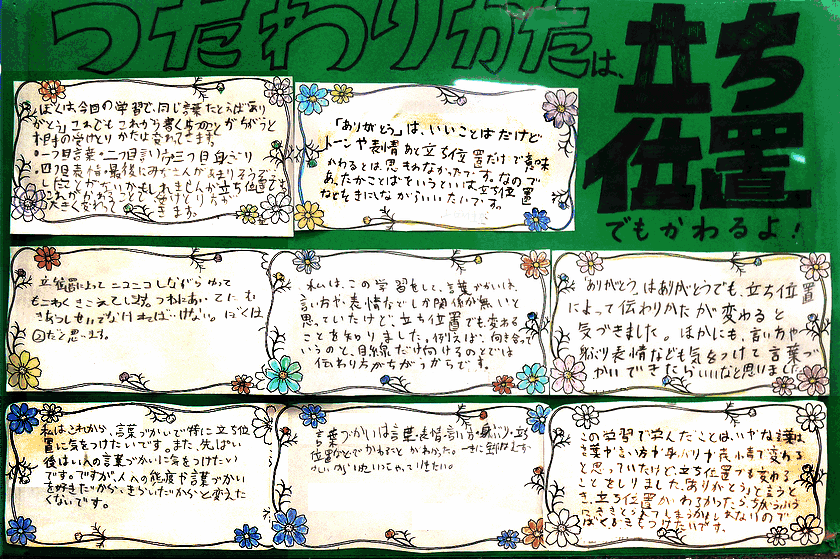 つたわりかたは、
立ち位置
でもかわるよ!
ぼくは今回の学習で、同じ言葉たとえばあり
がとうこれでもこれから書く4つのことがちがうと
相手の受けとりかたは変わってきます。
・一つ目言葉・二つ目言い方三つ目身ぶり
・四つ目表情・最後に
したことがないかもしれませんが立ち位置でも
これがかわることで受けとり方が
大きくちがって きます。
「ありがとう」は、いいことばだけど
トーンや表情あと立ち位置だけで意味
かわるとは思もわなかったです。なので
あたたかことばをいうといは立ち位置
などをきにしながらいいたいです。
立位置によってニコニコしながらゆって
もこわくきこえてしまう。つねにあいてにむ
きあってしせんでなければいけない。ぼくは
②だと思います。
私は、この学習をして、言葉づかいは、
言い方や、表情などでしか関係が無いと
思っていたけど、立ち位置でも変わる
ことを知りました。例えば、向き合って
いうのと、目線だけ向けるのとでは
伝わり方がちがうからです。
「ありがとう」はありがとうでも、立ち位置
によって伝わりかたが変わると
気づきました。ほかにも、言い方や
身ぶり表情なども気をつけて言葉づ
かいできたらいいなと思いました
私はこれから、言葉づかいで特に立ち位
置に気をつけたいです。また、先ぱい
後はいへの言葉づかいに気をつけたい
です。ですが、人への態度や言葉づかい
を好きだから、きらいだからと変えた
くないです。
言葉づかいは言葉・表情・言い方・身ぶり・立ち
位置などでかわることがわかった。
この学習で学んだことは、いやな言葉は、
言葉や言い方や身ぶりや表情で変わる
と思っていたけど、立ち位置でも変わる
ことをしりました。ありがとうと言うと
き、立ち位置がわるかったら、ちがうふう
にききとら